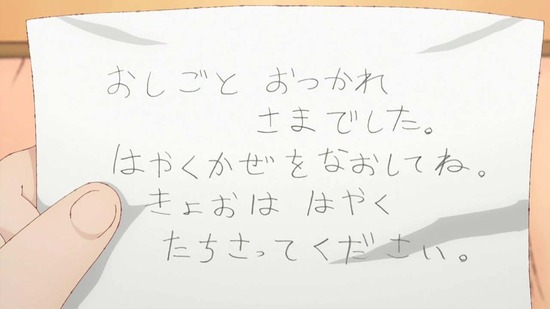 おしごと おつかれ
さまでした。
はやくかぜをなおしてね。
きょおは はやく
たちさってください。